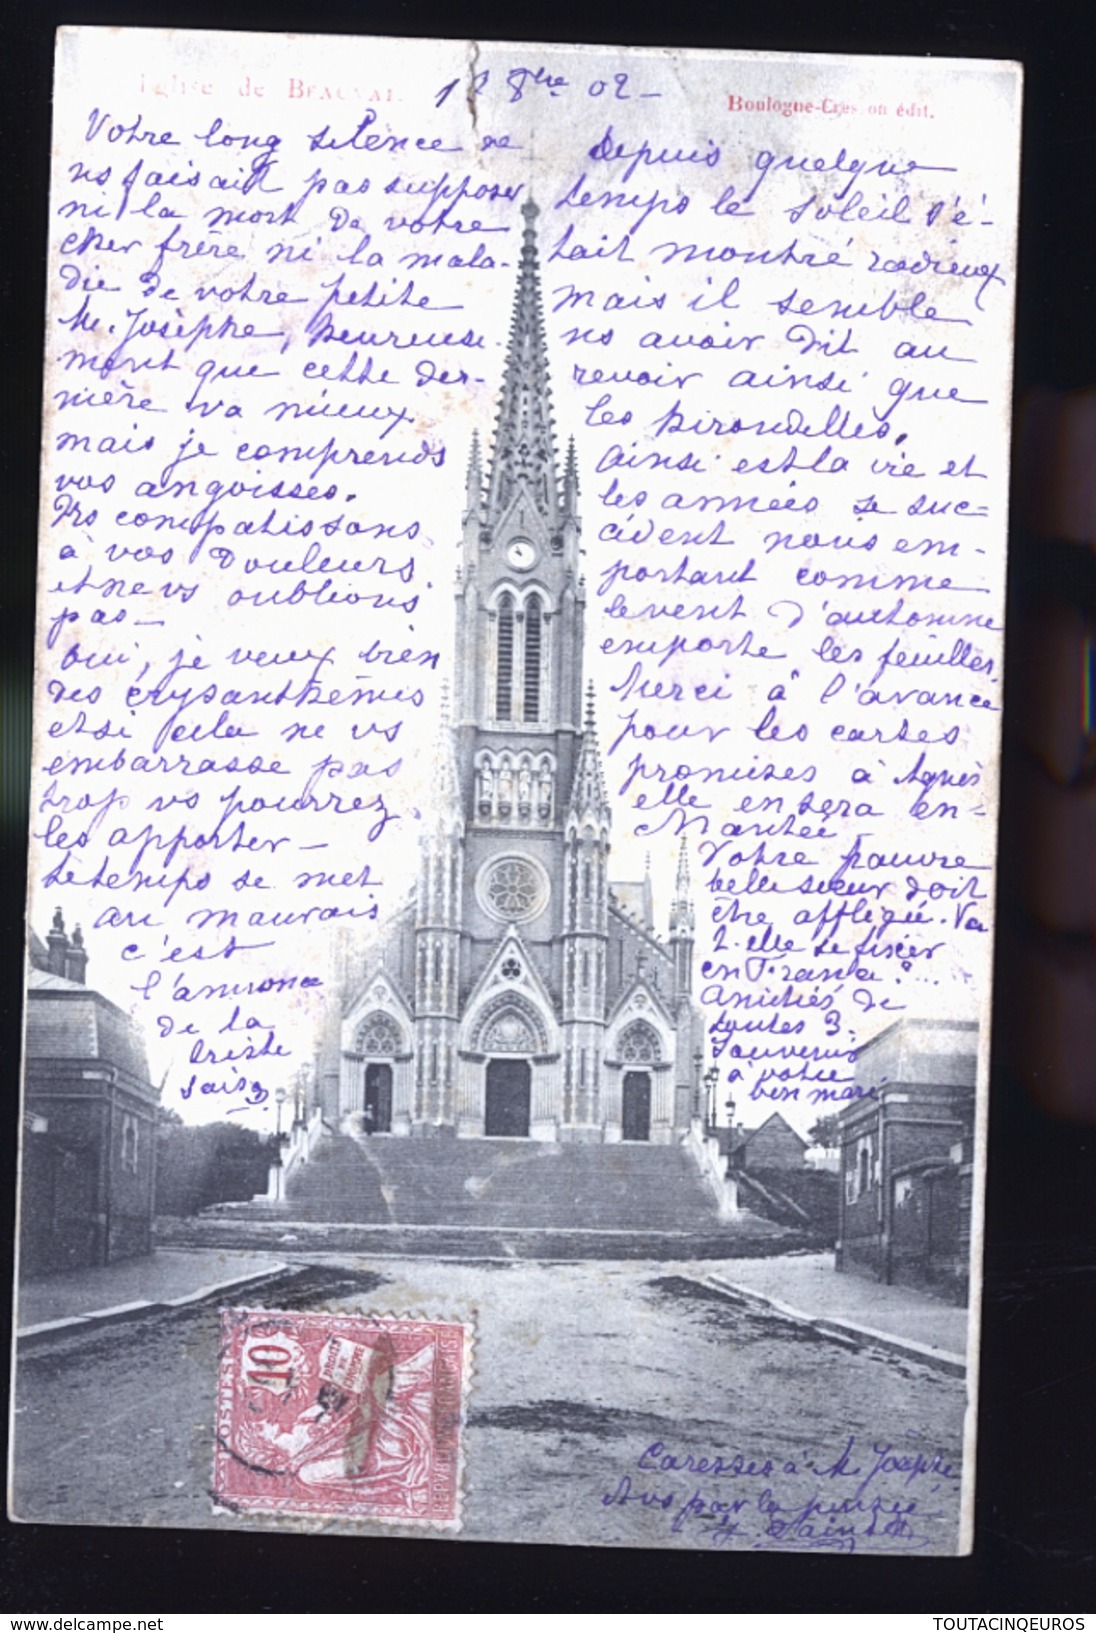 Eglise de BEAUVAL
Boulogne-Cresson édit.
12 8bre 02 -
Votre long silence ne
ns faisait pas supposer
ni la mort de votre
cher frère ni la mala-
die de votre petite
M. Josèphe, heureuse-
ment que cette der-
nière va mieux
mais je comprends
vos angoisses.
Ns compatissons
à vos douleurs
et ne vs oublions
pas -
Oui, je veux bien
des crysanthèmes
et si cela ne vs
embarrasse pas
trop vs pourrez
les apporter -
le temps se met
au mauvais
c'est
l'annonce
de la
triste
saison
Depuis quelque
temps le soleil s'é-
tait montré radieux
mais il semble
ns avoir dit au
revoir ainsi que
les hirondelles.
Ainsi est la vie et
les années se suc-
cèdent nous em-
portant comme
le vent d'automne
emporte les feuilles.
Merci à l'avance
pour les cartes
promises à Agnès
elle en sera en-
chantée
Votre pauvre
belle soeur doit
être affligée. Va
t-elle se fixer
en France ?...
Amitiés de
toutes 3.
Souvenirs
à votre
bon mari
Caresses à M Josèphe
A vs par la pensée
10
POSTES
DROITS DE L'HOMME
REPUBLIQUE FRANCAISE
TOUTACINQEUROS